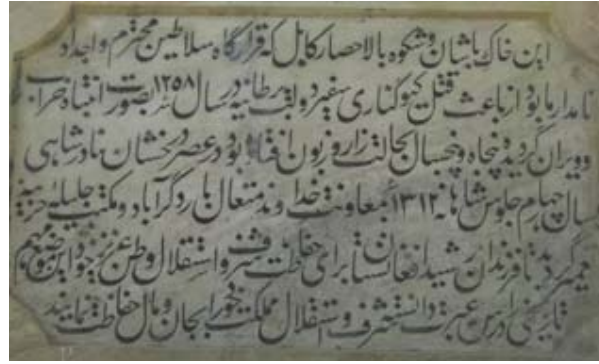 این خاک باشان و شکوه بالاحصار کابل که قرارگاه سلاطین محترم و اجداد
نامدار ما بود از باعث قتل کیوکناری سفیر دولت برطانیه در سال ۱۲۵۸ بصورت انتباه خراب
و ویران گردیده پنجاه و پنجسال بحالت زار و زبون افتاده بود در عصر درخشان نادر شاهی
بسال چهارم جلوس شاهانه ۱۳۱۲ بمعاونت خداوند متعال بار دگر آباد و مکتب جلیله حربیه
میگردد تا فرزندان رشید افغانستان برای حفاظت شرف و استقلال وطن عزیز خود این موضع مهم
تاریخی را درس عبرت دانسته شرف و استقلال مملکت خود را بجان و مال حفاظت نمایند